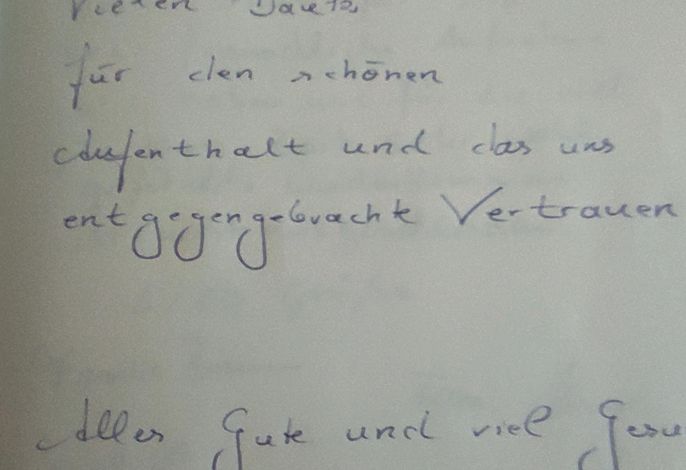 Vielen Dank
für den schönen
Aufenthalt und das uns
entgegengebrachte Vertrauen
Alles Gute und viel Gesu